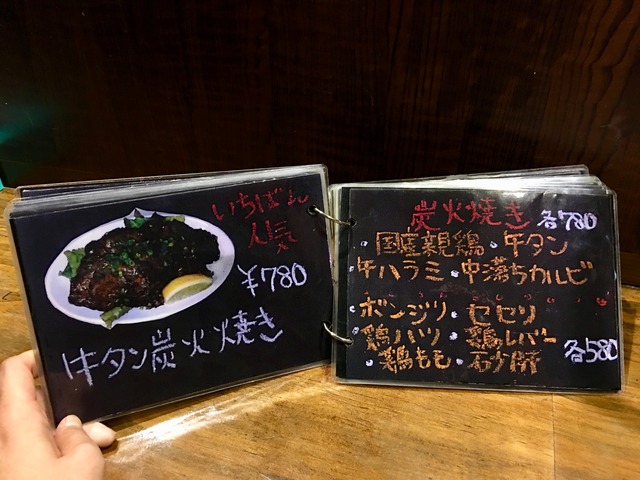 いちばん
人気
¥780
牛タン炭火焼き
炭火焼き 各780
・国産親鶏・牛タン
・牛ハラミ・中落ちカルビ
・ボンジリ・セセリ
・鶏ハツ・鶏レバー
・鶏もも・砂肝 各580